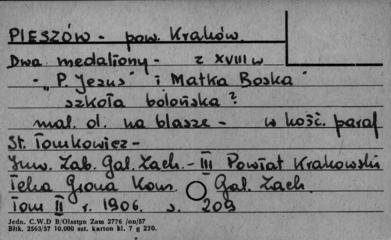 PIESZÓW - pow. Kraków.
Dwa medaliony - z XVIII w
- "P. Jezus" i Matka Boska"
szkoła bolońska?
mal. ol. na blasze - w kość. paraf
St. Tomkowicz -
Inw. Zab. Gal. Zach. - III Powiat Krakowski
Teka Grona Kons. Gal. Zach.
Tom II r. 1906. s. 209
Jedn. C.W.D B/Olsztyn Zam 2776 /on/57
Bltk. 2563/57 10.000 szt. karton kl. 7 g 270.